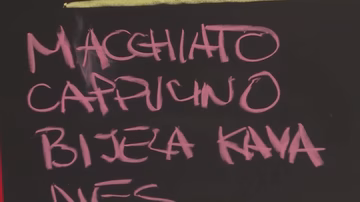 MACCHIATO
CAPPUCINO
BIJELA KAVA